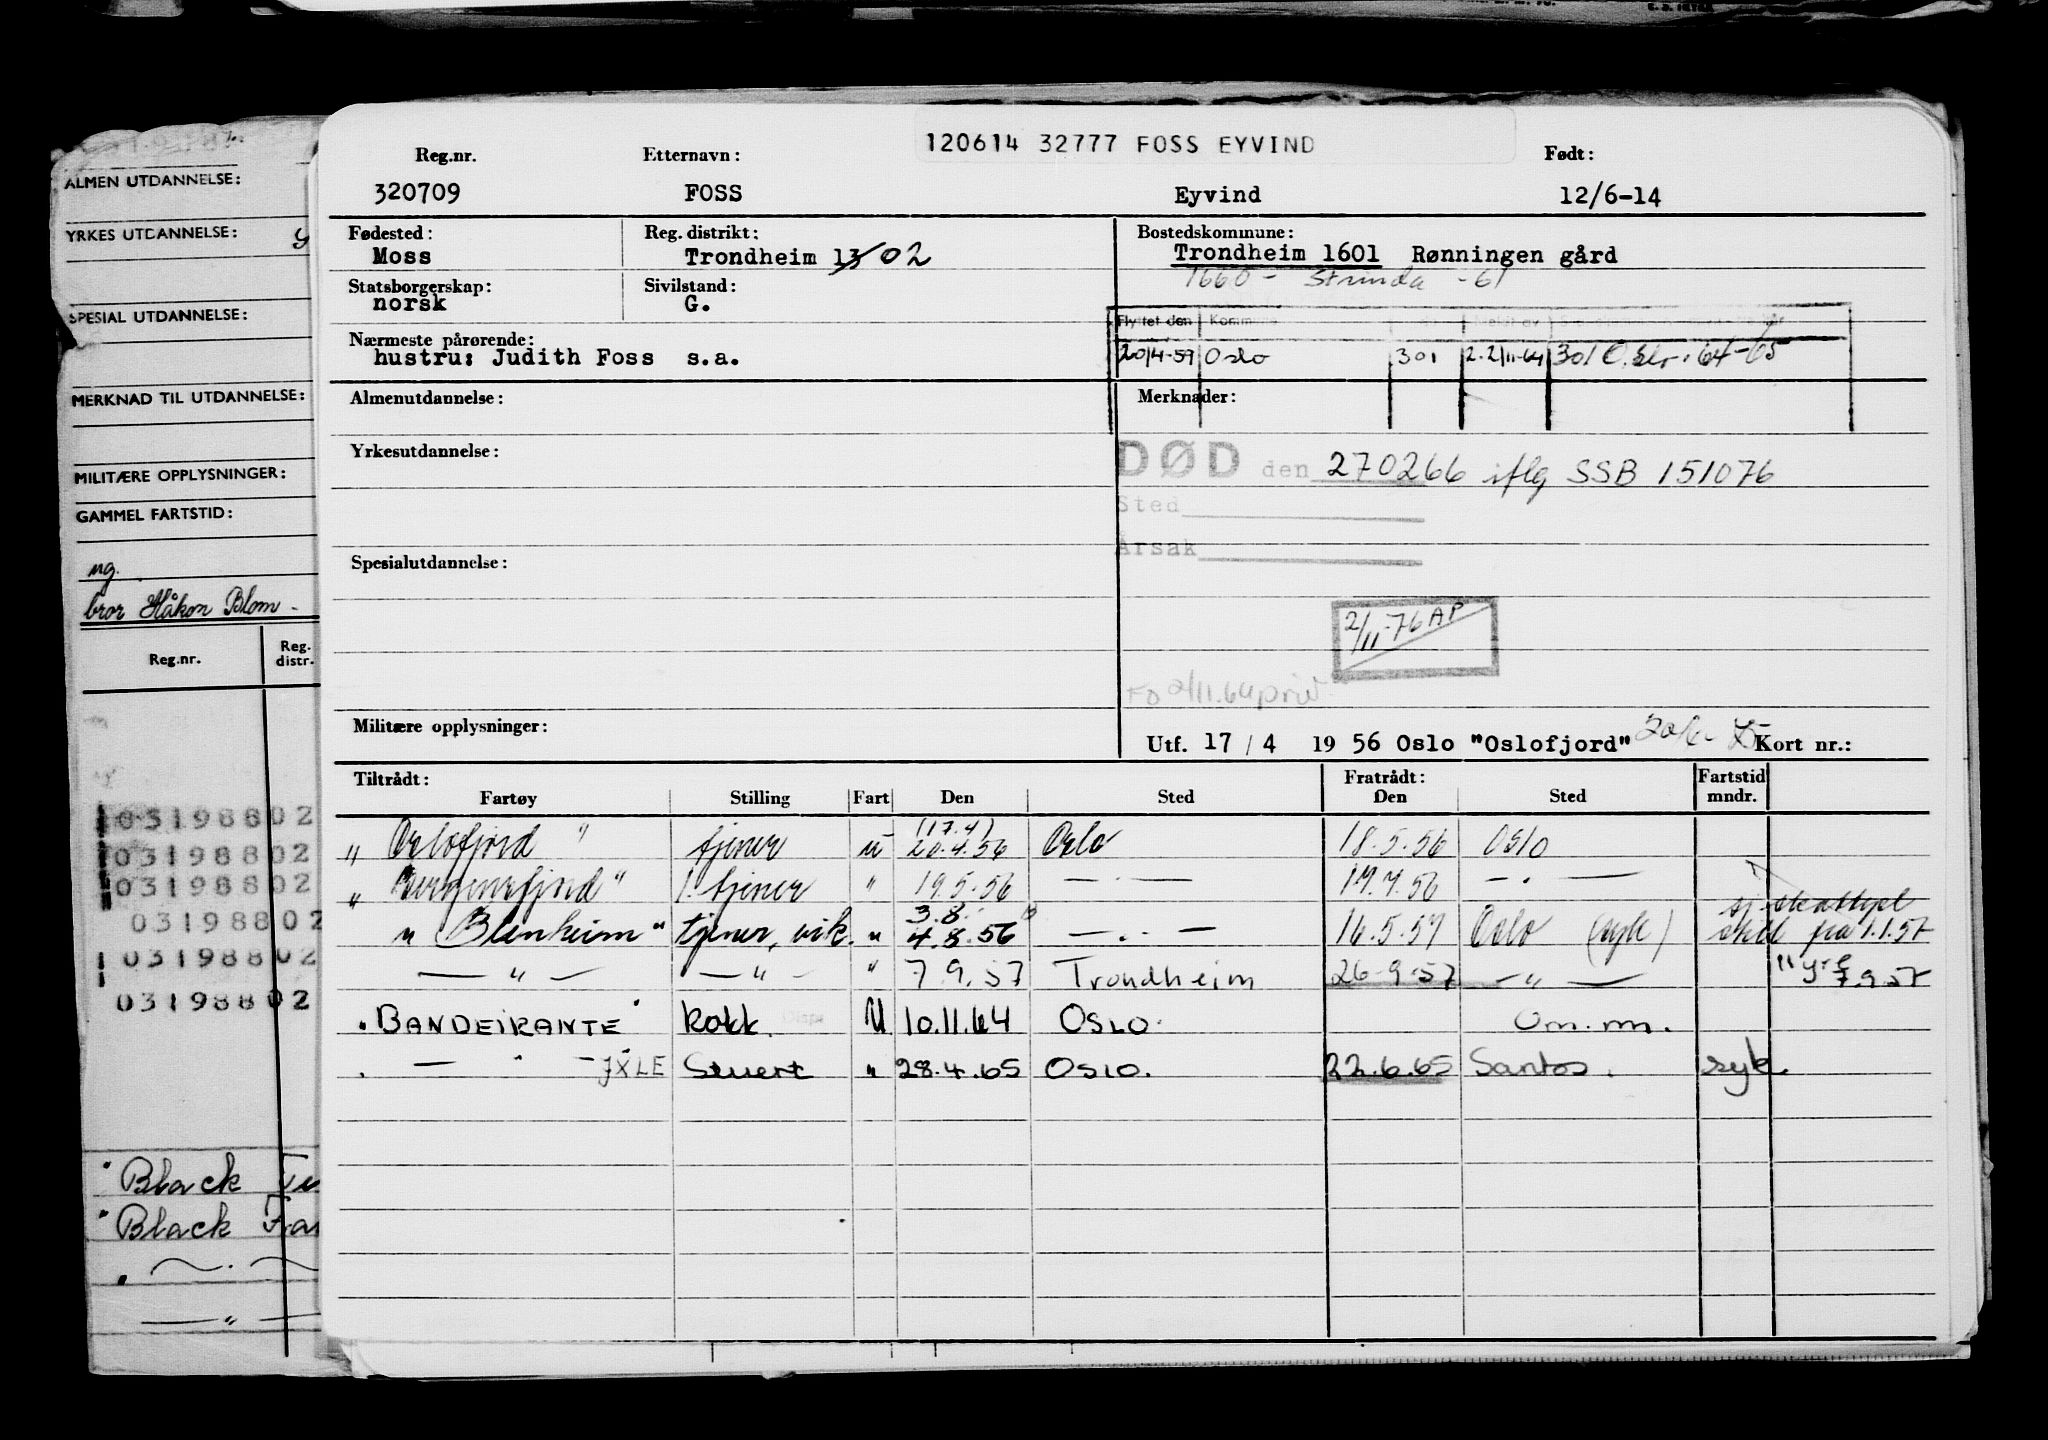 120614 32777 FOSS EYVIND
Reg.nr. Etternavn: Født:
320709 FOSS Eyvind 12/6-14
Fødested: Reg. distrikt: Bostedskommune:
Moss Trondheim 13/02 Trondheim 1601 Rønningen gård
1660 - Strinda -61
Statsborgerskap: Sivilstand:
norsk G.
Flyttet den Kommune
Nærmeste pårørende:
hustru: Judith Foss s.a.
20/4-59 Oslo 301 2.2/11-64 301 O.slo: 64-65
Almenutdannelse: Merknader:
Yrkesutdannelse:
DØD den 270266 iflg SSB 151076
Sted
Årsak
Spesialutdannelse:
2/11-76 AP
FO 2/11.64 priv.
Militære opplysninger:
Utf. 17/4 1956 Oslo "Oslofjord" Kort nr.:
Tiltrådt: Fratrådt: Fartstid
Fartøy Stilling Fart Den Sted Den Sted mndr.
(17.4)
" Oslofjord " tjener u 20.4.56 Oslo 18.5.56 Oslo
" Bergensfjord " 1. tjener " 19.5.56 — . — 17.7.56 — . —
3.8.
" Blenheim " tjener, vik. " 4.8.56 — . . — 16.5.57 Oslo (syk) fra 1.1.57
— " — — " — " 7.9.57 Trondheim 26-9-57 — " — 7.9.57
. BANDEIRANTE kokk. U 10.11.64 OSLO. Om.m.
. — " — JXLE Stuert " 28.4.65 OSLO. 22.6.65 Santos. syk.
ALMEN UTDANNELSE:
YRKES UTDANNELSE:
SPESIAL UTDANNELSE:
MERKNAD TIL UTDANNELSE:
MILITÆRE OPPLYSNINGER:
GAMMEL FARTSTID:
ug.
bror Håkon Blom -
Reg.nr. Reg. distr.
03198802
03198802
03198802
03198802
03198802
03198802
" Black
" Black
— " —